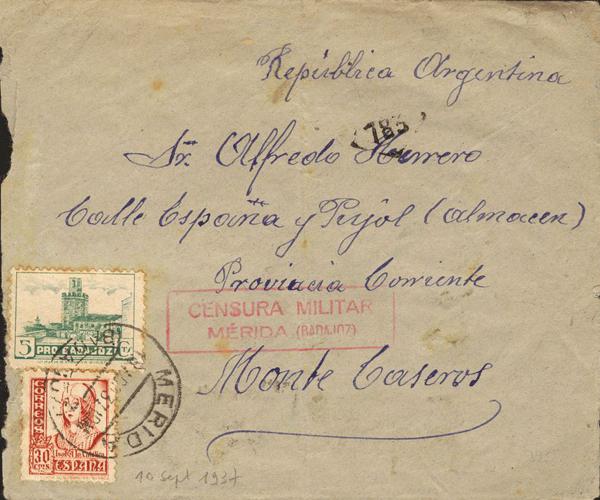 República Argentina
783
Sr. Alfredo Herrero
Calle España y Pujol (almacen)
Provincia Corriente
CENSURA MILITAR
MÉRIDA (BADAJOZ)
Monte Caseros
5 PRO BADAJOZ CTS
MERIDA
CORREOS
30 CTS.
ESPAÑA
10 sept 1937